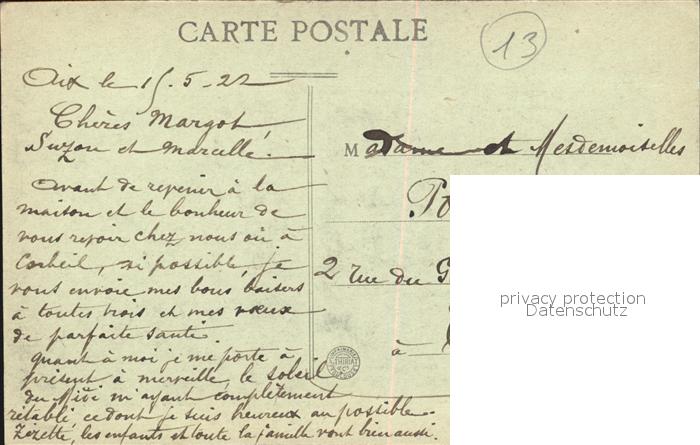 CARTE POSTALE
13
Aix le 15.5.22
Chères Margot,
Suzon et Marcelle.
Madame et Mesdemoiselles
Avant de revenir à la
maison et le bonheur de
vous revoir chez nous ou à
Corbeil, si possible, je
vous envoie mes bons baisers
à toutes trois et mes vœux
de parfaite santé.
quant à moi je me porte à
présent à merveille, le soleil
du Midi m'ayant complètement
rétabli, ce dont je suis heureux au possible.
Zézette, les enfants et toute la famille vont bien aussi.
2 rue du G
à
privacy protection
Datenschutz